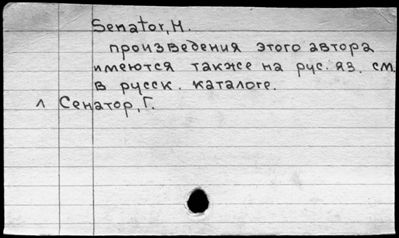 Senator, H.
произведения этого автора
имеются также на рус. яз. см.
в русск. каталоге.
л Сенатор, Г.